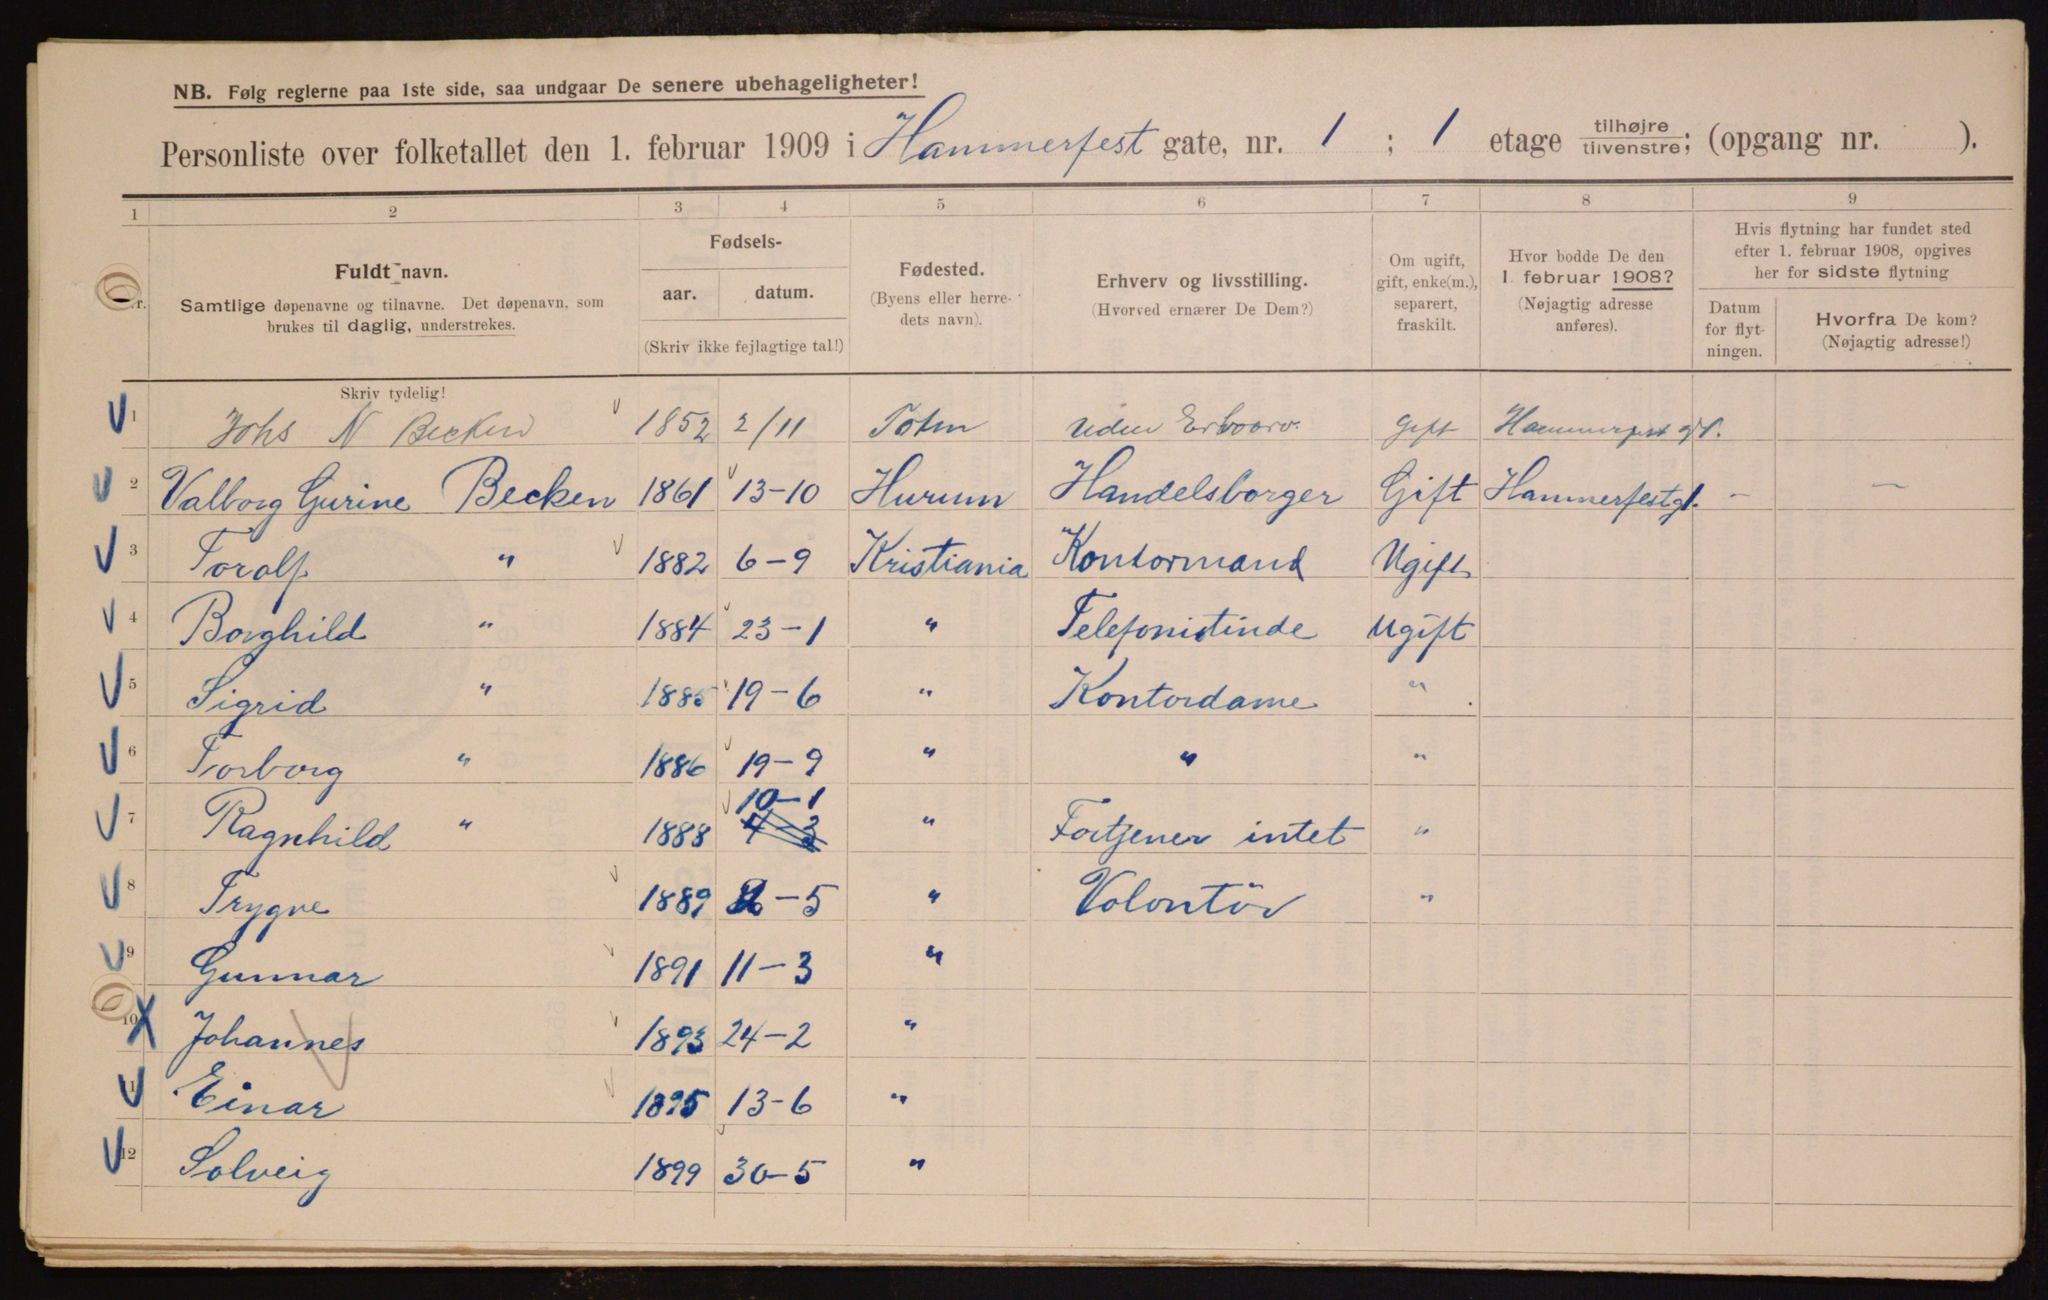 NB. Følg reglerne paa 1ste side, saa undgaar De senere ubehageligheter!
Personliste over folketallet den 1. februar 1909 i Hammerfest gate, nr. 1 ; 1 etage tilhøjre tilvenstre; (opgang nr. ).
1 2 3 4 5 6 7 8 9
Nr.
Fuldt navn.
Samtlige døpenavne og tilnavne. Det døpenavn, som
brukes til daglig, understrekes.
Skriv tydelig!
Fødsels-
aar. datum.
(Skriv ikke fejlagtige tal!)
Fødested.
(Byens eller herre-
dets navn).
Erhverv og livsstilling.
(Hvorved ernærer De Dem?)
Om ugift,
gift, enke(m.),
separert,
fraskilt.
Hvor bodde De den
1. februar 1908?
(Nøjagtig adresse
anføres).
Hvis flytning har fundet sted
efter 1. februar 1908, opgives
her for sidste flytning
Datum
for flyt-
ningen.
Hvorfra De kom?
(Nøjagtig adresse!)
1 Johs N Becken 1852 2/11 Toten Uden Gift
2 Valborg Gurine Becken 1861 13-10 Hurum Handelsborger Gift Hammerfestg 1. – –
3 Torolf " 1882 6-9 Kristiania Kontormand Ugift
4 Borghild " 1884 23-1 " Telefonistinde Ugift
5 Sigrid " 1885 19-6 " Kontordame "
6 Torborg " 1886 19-9 " " "
7 Ragnhild " 1888 10-1 " Fortjener intet "
8 Trygve 1889 -5 " Volontør "
9 Gunnar 1891 11-3 "
10 Johannes 1893 24-2 "
11 Einar 1895 13-6 "
12 Solveig 1899 30-5 "